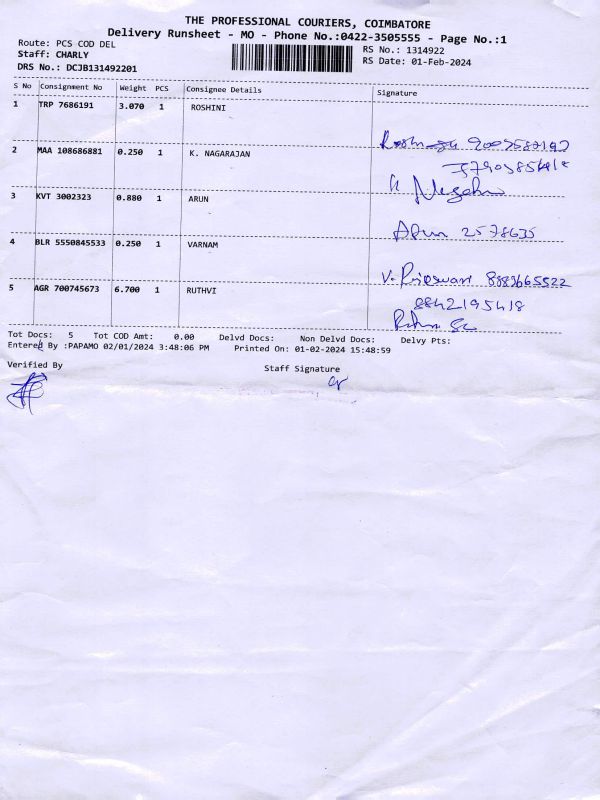 THE PROFESSIONAL COURIERS, COIMBATORE
Delivery Runsheet - MO - Phone No.:0422-3505555 - Page No.:1
Route: PCS COD DEL RS No.: 1314922
Staff: CHARLY RS Date: 01-Feb-2024
DRS No.: DCJB131492201
S No Consignment No Weight PCS Consignee Details Signature
1 TRP 7686191 3.070 1 ROSHINI
2 MAA 108686881 0.250 1 K. NAGARAJAN
3 KVT 3002323 0.880 1 ARUN
Arun 2578635
4 BLR 5550845533 0.250 1 VARNAM
8882665522
5 AGR 700745673 6.700 1 RUTHVI
8842195418
Tot Docs: 5 Tot COD Amt: 0.00 Delvd Docs: Non Delvd Docs: Delvy Pts:
Entered By :PAPAMO 02/01/2024 3:48:06 PM Printed On: 01-02-2024 15:48:59
Verified By Staff Signature